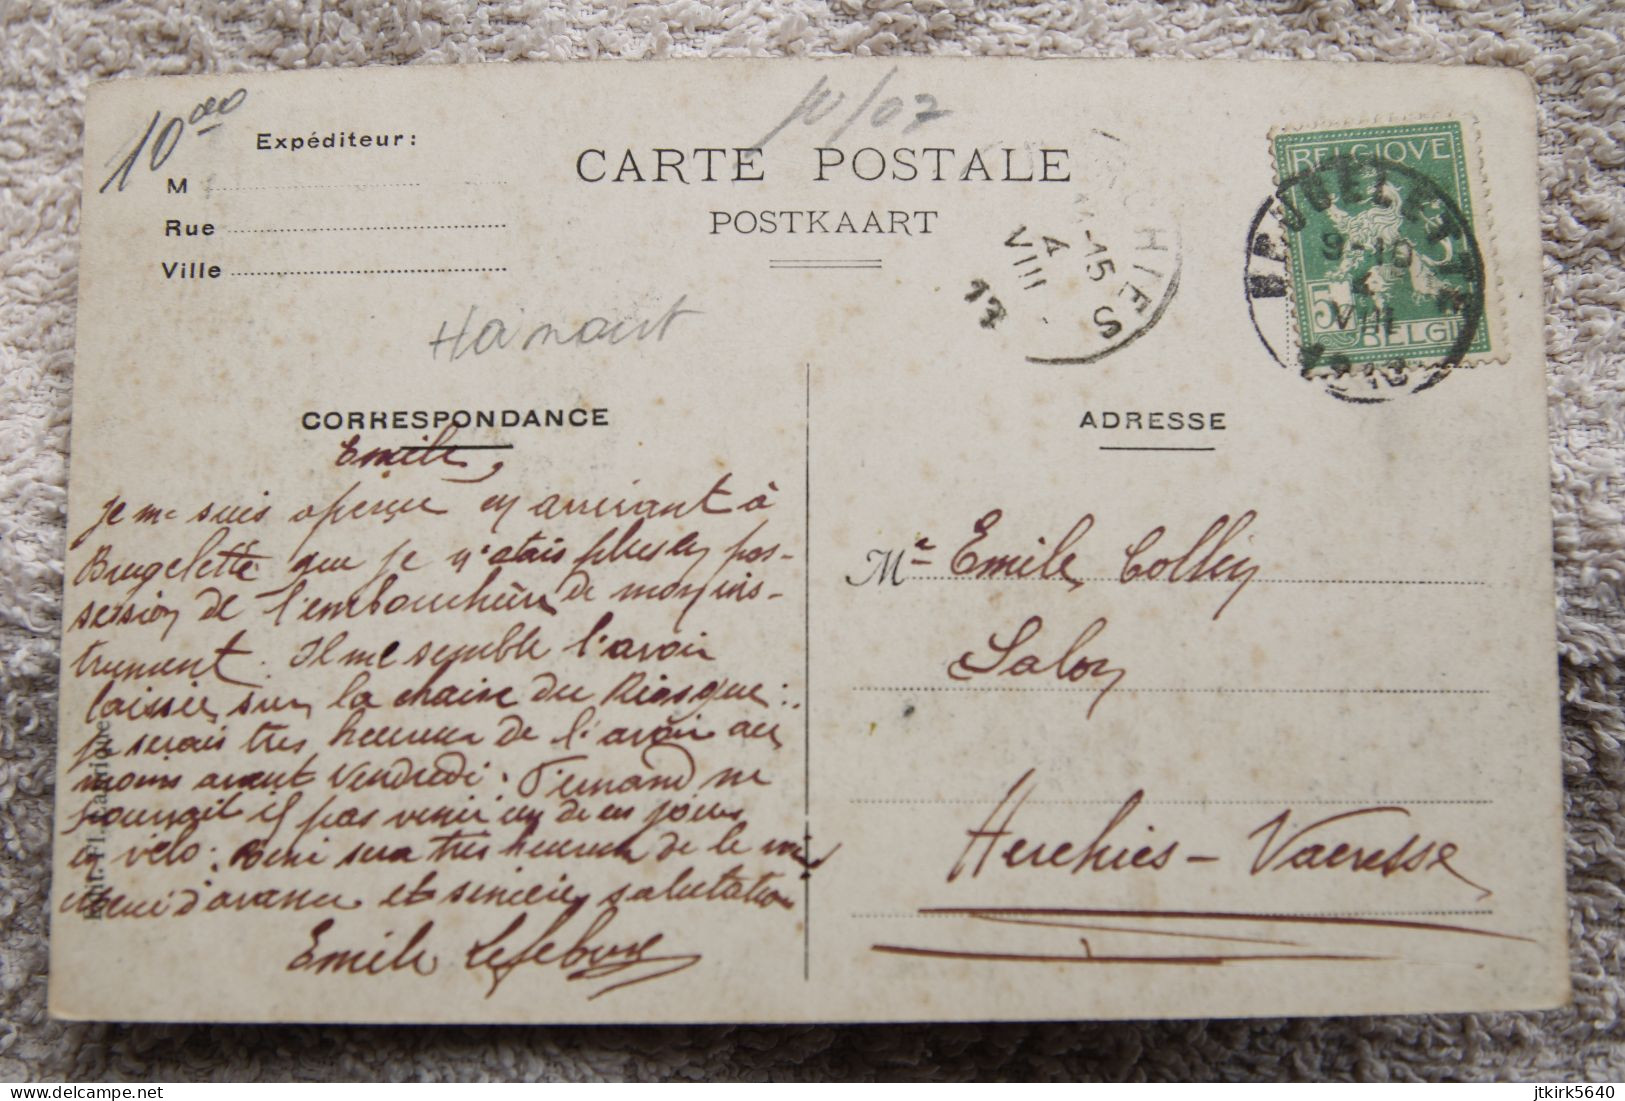 10.00
Expéditeur :
M
Rue
Ville
/07
CARTE POSTALE
POSTKAART
HIES
15
4
VIII
13
BELGIQVE
5
BELGIE
BRUGELETTE
9-10
4
VIII
1913
Hainaut
CORRESPONDANCE
Emile,
je me suis aperçu en arrivant à
Brugelette que je n'étais plus en pos-
session de l'embouchure de mon ins-
trument. Il me semble l'avoir
laissée sur la chaise du Kiosque :
je serais très heureux de l'avoir au
moins avant Vendredi. Fernand ne
pourrait il pas venir un de ces jours
en vélo. sera très heureux de le
Merci d'avance et sincères salutations
Emile Lefebvre
ADRESSE
Mr Emile Collin
Salon
Herchies - Vacresse
Edit. Fl. Laurique
delcampe.net
jtkirk5640